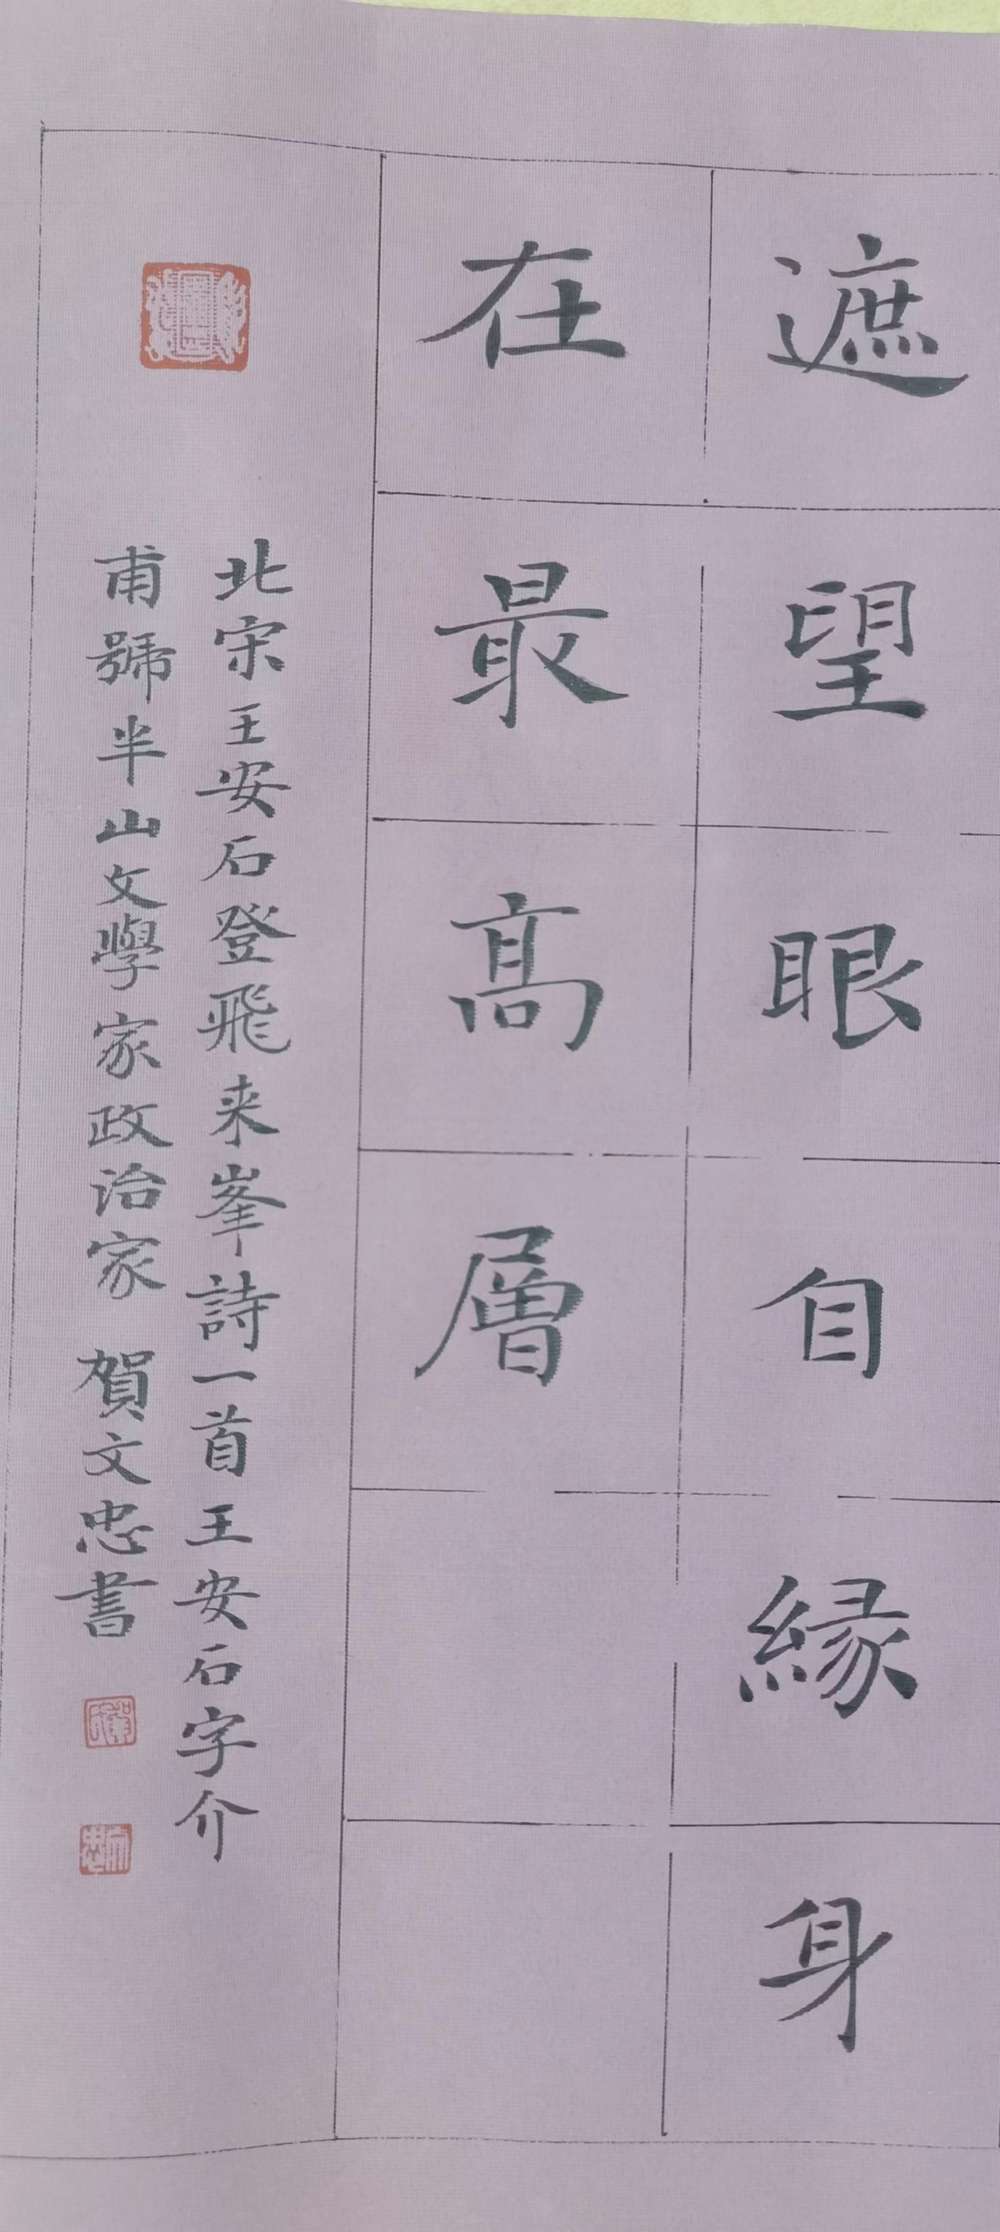 遮望眼自緣身
在最高層
北宋王安石登飛来峯詩一首王安石字介
甫號半山文學家政治家 賀文忠書